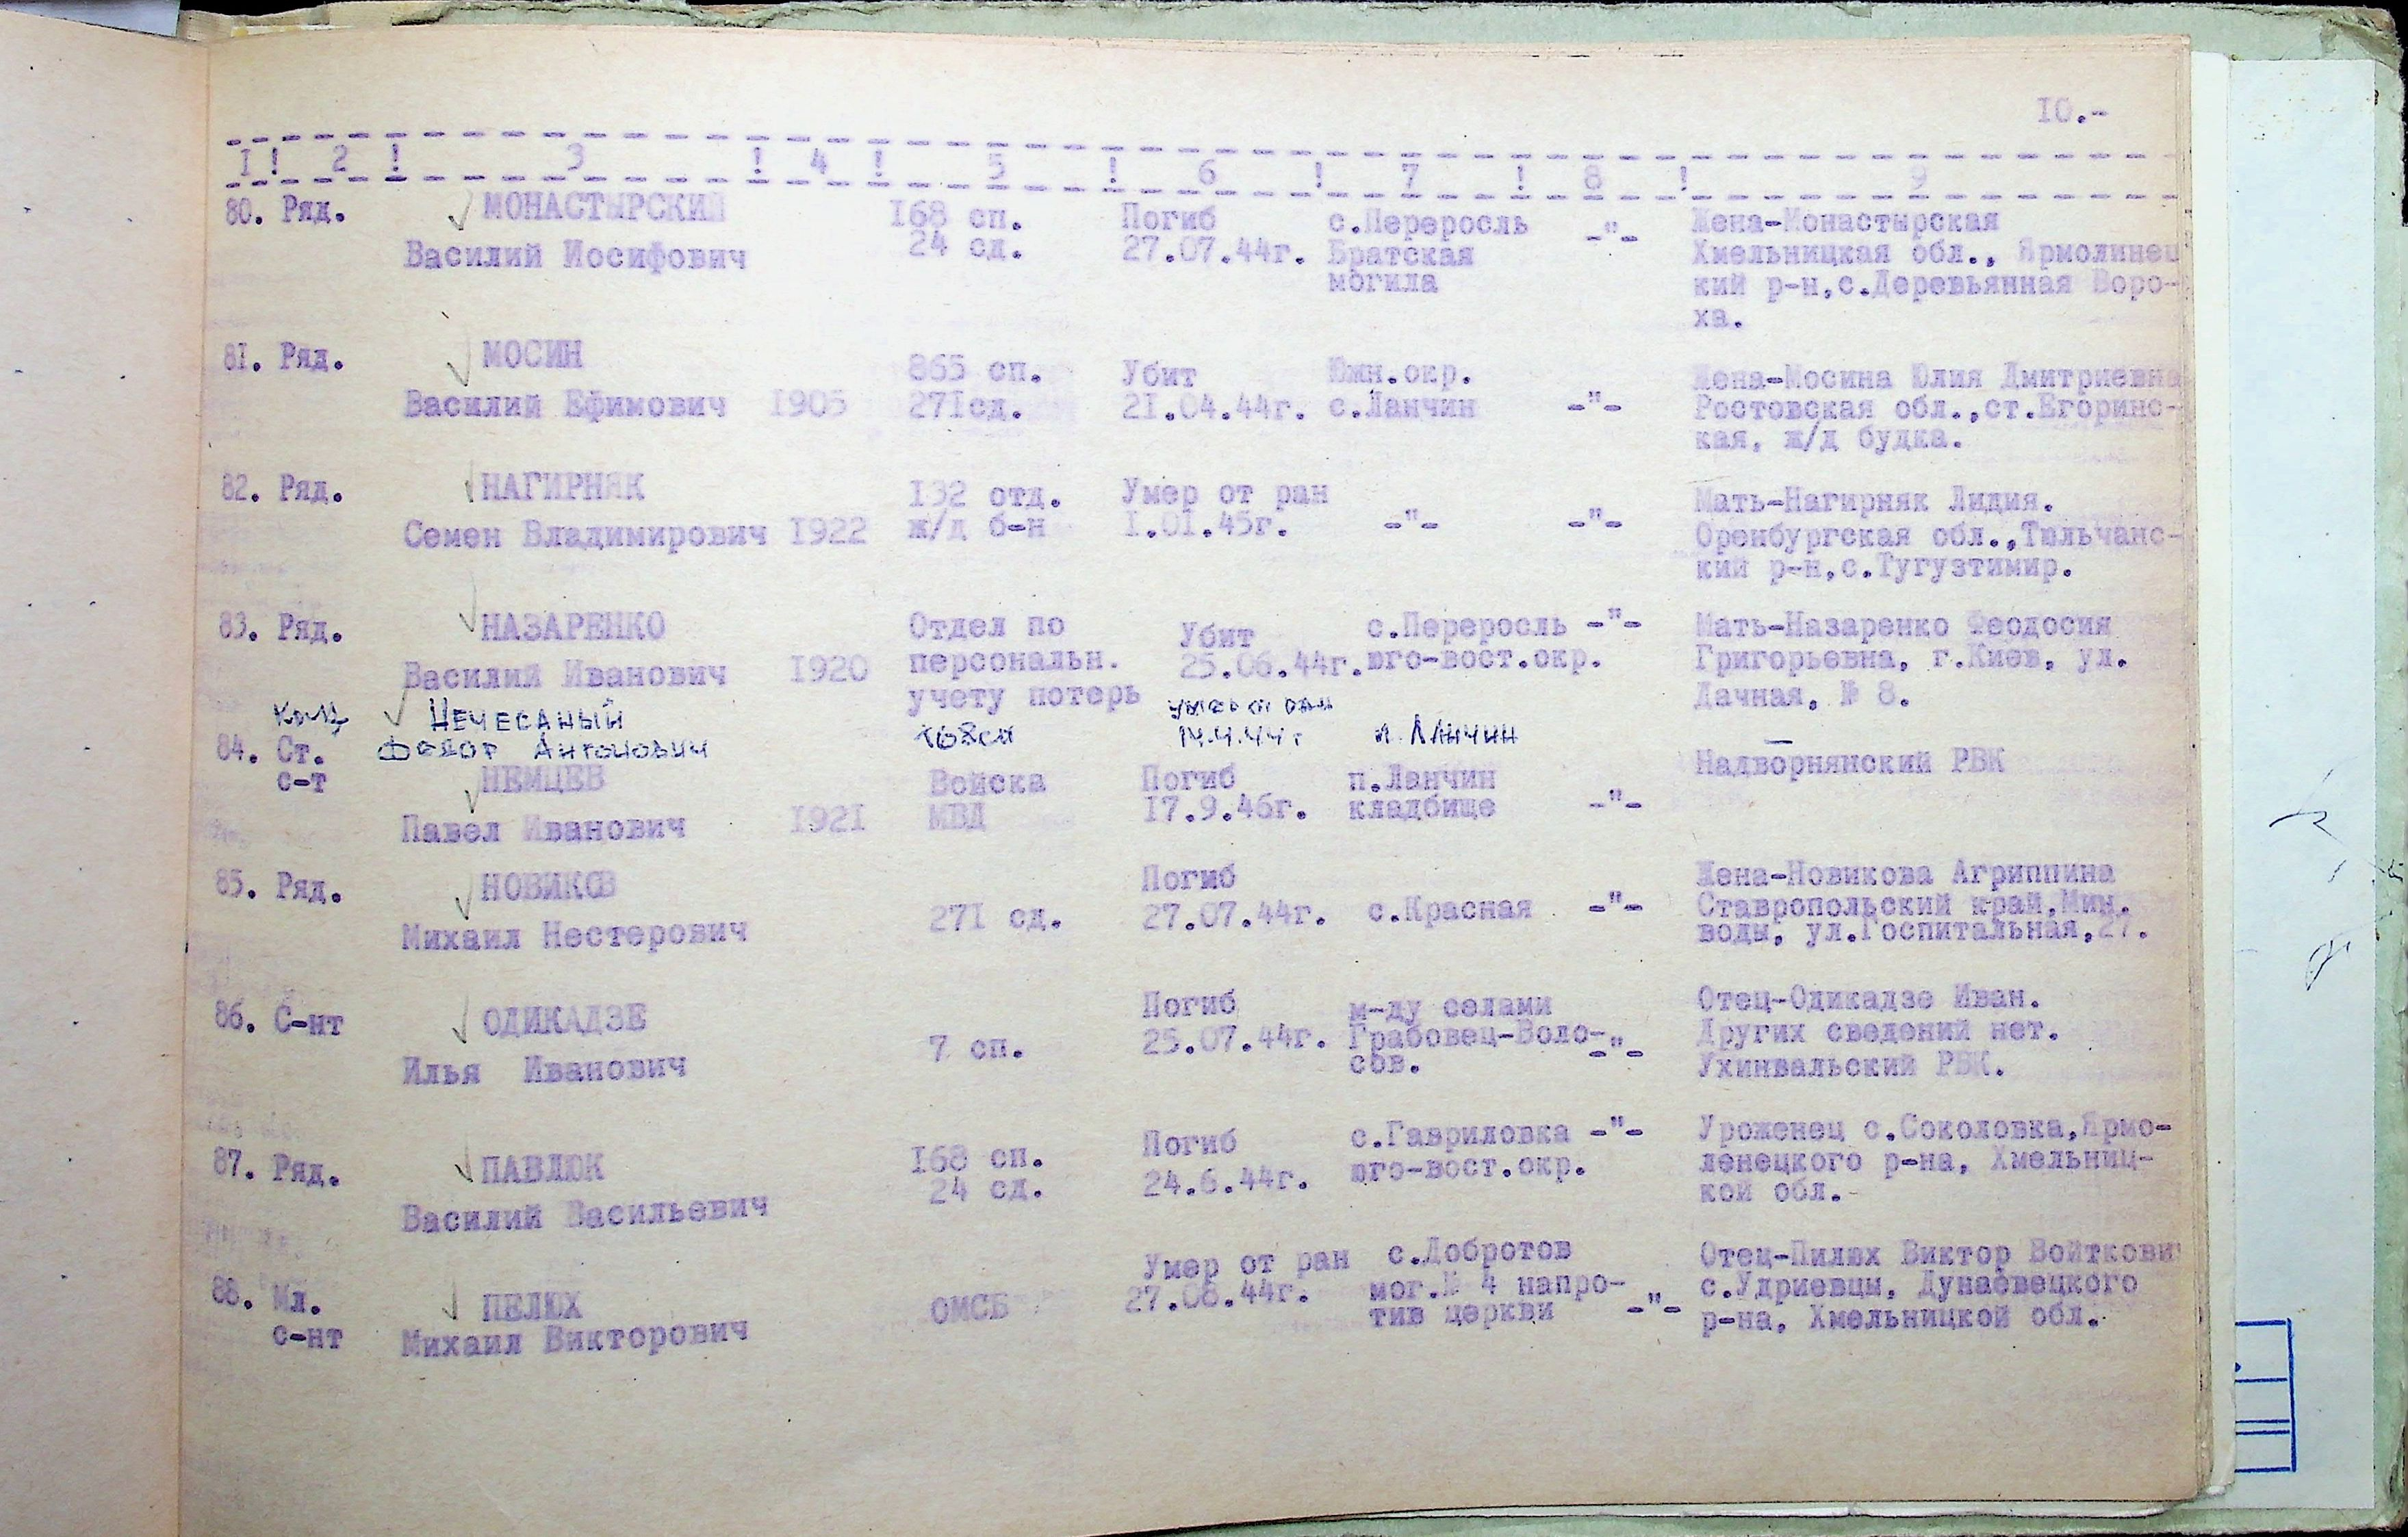 10.-
1 ! 2 ! 3 ! 4 ! 5 ! 6 ! 7 ! 8 ! 9
80. Ряд. МОНАСТЫРСКИЙ 168 сп. Погиб с.Переросль -"- Жена-Монастырская
Василий Иосифович 24 сд. 27.07.44г. Братская Хмельницкая обл., Ярмолинец
могила кий р-н,с.Деревьянная Воро-
ха.
81. Ряд. МОСИН 865 сп. Убит Южн.окр. Жена-Мосина Юлия Дмитриевна
Василий Ефимович 1905 271сд. 21.04.44г. с.Ланчин -"- Ростовская обл.,ст.Егоринс-
кая, ж/д будка.
82. Ряд. НАГИРНЯК 132 отд. Умер от ран Мать-Нагирняк Лидия.
Семен Владимирович 1922 ж/д б-н 1.01.45г. -"- -"- Оренбургская обл.,Тюльчанс-
кий р-н,с.Тугузтимир.
83. Ряд. НАЗАРЕНКО Отдел по Убит с.Переросль -"- Мать-Назаренко Феодосия
Василий Иванович 1920 персональн. 25.06.44г. юго-вост.окр. Григорьевна, г.Киев, ул.
учету потерь Дачная, № 8.
НЕЧЕСАНЫЙ умер от ран
Федор Антонович 168сп 14.4.44г п. Ланчин
84. Ст. НЕМЦЕВ Войска Погиб п.Ланчин Надворнянский РВК
с-т Павел Иванович 1921 МВД 17.9.46г. кладбище -"-
85. Ряд. НОВИКОВ Погиб Жена-Новикова Агриппина
Михаил Нестерович 271 сд. 27.07.44г. с.Красная -"- Ставропольский край,Мин.
воды, ул.Госпитальная,27.
86. С-нт ОДИКАДЗЕ Погиб м-ду селами Отец-Одикадзе Иван.
Илья Иванович 7 сп. 25.07.44г. Грабовец-Воло- -"- Других сведений нет.
сов. Ухинвальский РВК.
87. Ряд. ПАВЛЮК 168 сп. Погиб с.Гавриловка -"- Уроженец с.Соколовка,Ярмо-
Василий Васильевич 24 сд. 24.6.44г. юго-вост.окр. ленецкого р-на, Хмельниц-
кой обл.
88. Мл. ПЕЛЮХ ОМСБ Умер от ран с.Добротов Отец-Пилюх Виктор Войткови
с-нт Михаил Викторович 27.08.44г. мог.№ 4 напро- с.Удриевцы, Дунаевецкого
тив церкви -"- р-на, Хмельницкой обл.